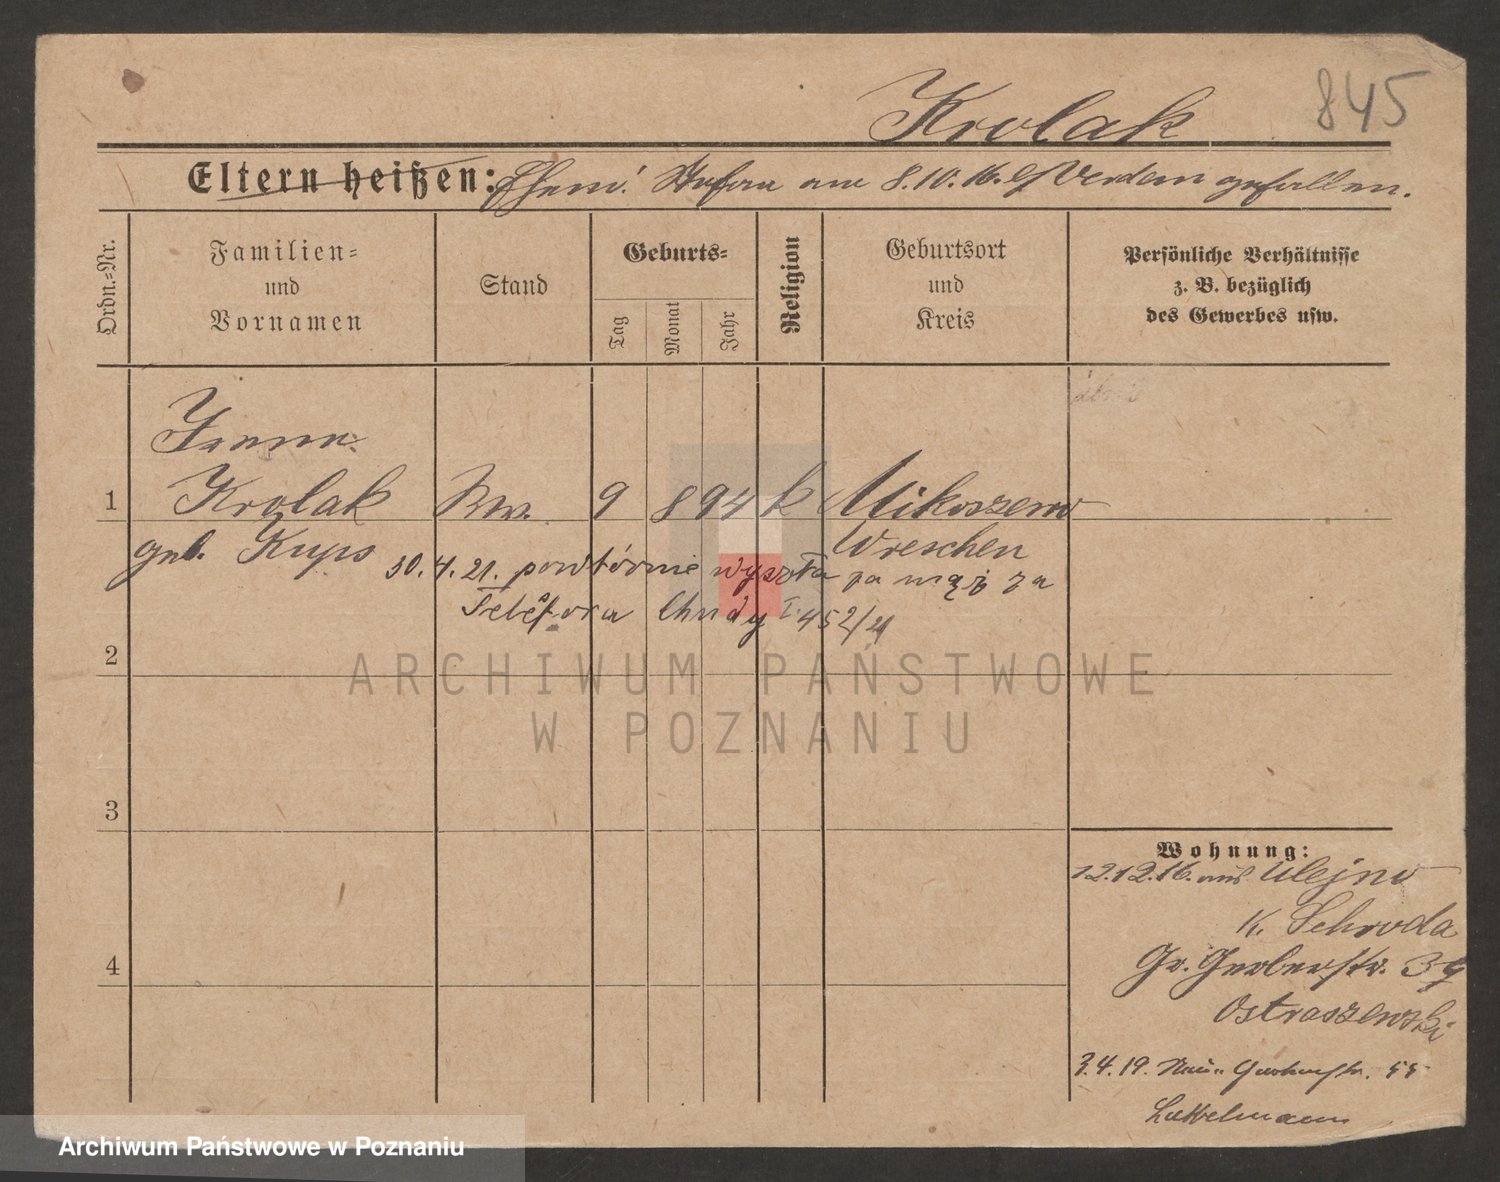 Krolak
845
Eltern heißen: Ehem. Stefan am 8.10.16. b/Verdun gefallen.
Ordn.-Nr.
Familien-
und
Vornamen
Stand
Geburts-
Tag
Monat
Jahr
Religion
Geburtsort
und
Kreis
Persönliche Verhältnisse
z. B. bezüglich
des Gewerbes usw.
1
Krolak Ww. 9 8 94 k Mikoszewo
geb. Kups Wreschen
30.4.21. powtórnie wyszła za mąż za
Chudy I 452/21
2
ARCHIWUM PAŃSTWOWE
W POZNANIU
3
4
Wohnung:
12.12.16. aus Ulejno
K. Schroda
Gr. Gerberstr. 39
Ostraszewski
3.4.19. Gerberstr. 55
Archiwum Państwowe w Poznaniu